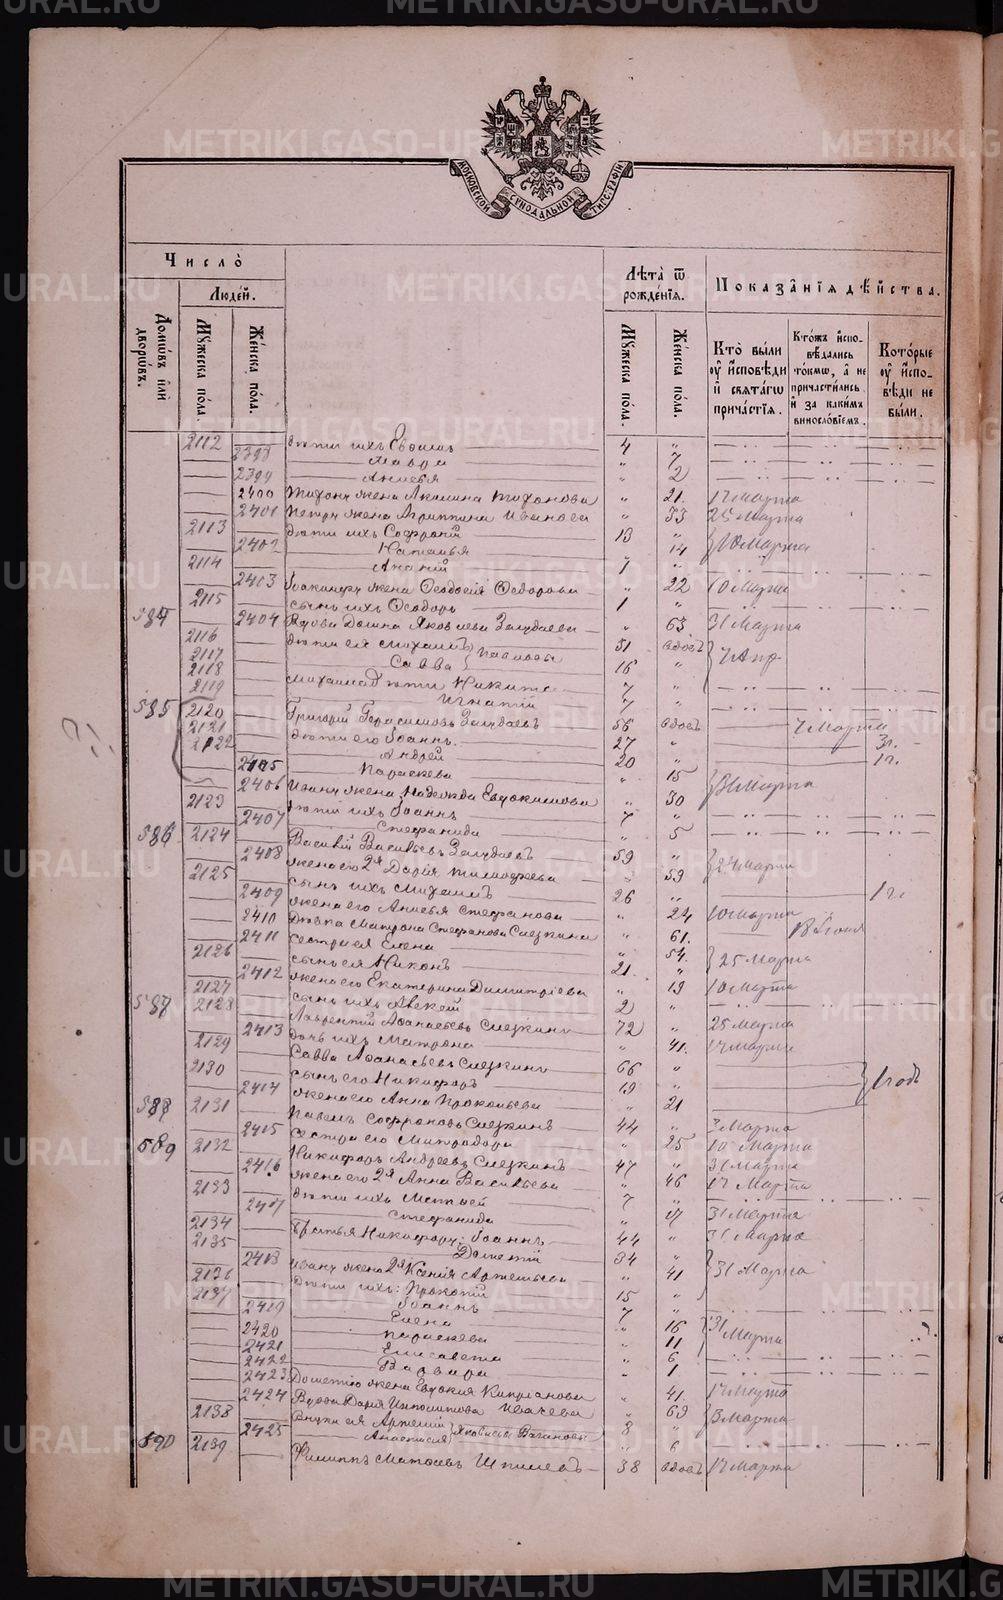 МОСКОВСКОЙ СУНОДАЛЬНОЙ ТИПОГРАФІИ
Число̀
Людей.
Домѡвъ или дворѡвъ.
Мꙋжеска пола.
Женска пола.
Лѣта ѿ рожденїѧ.
Мꙋжеска пола.
Женска пола.
Показанїѧ дѣйства.
Кто были ᲂу исповѣди и свѧтагѡ причастїѧ.
Ктожъ исповѣдались токмѡ, а не причастились и за какимъ винословїемъ.
Которые ᲂу исповѣди не были.
2112 дѣти ихъ Евфимъ 4 "
2398 Мавра " 7
2399 Анисья " 2
2400 Тихону жена Акилина Тихонова " 21. 17 Марта
2401 Петру жена Агриппина Иванова " 33 25 Марта
2113 дѣти ихъ Софроній 19 "
2402 Наталья " 14 10 Марта
2114 Ананій 1 "
2403 Іоакинфу жена Ѳеодосія Ѳедорова " 22 10 Марта
2115 сынъ ихъ Ѳеодоръ 1 "
584 2404 Вдова Домна Яковлева " 63 31 Марта
2116 дѣти ея Михаилъ 51 вдовъ
2117 Савва Павловы 16 " 7 Апр
2118 Михаила дѣти Никита 7 "
2119 Игнатій 7 "
585 2120 Григорій Герасимовъ 56 вдовъ 7 Марта
2121 дѣти его Іоаннъ. 27 " 3 г.
2122 Андрей 20 " 1 г.
2405 Параскева " 15
2406 Ивану жена Надежда Евдокимова " 30 31 Марта
2123 дѣти ихъ Іоаннъ 7 "
2407 Стефанида " 5
586 2124 Василій Васильевъ 59 "
2408 жена его 2я Дарія Тимофеева " 59 24 Марта
2125 сынъ ихъ Михаилъ 26 " 1 г.
2409 жена его Анисья Стефанова " 24 10 Марта
2410 Дѣвка Матрона Стефанова Слезкина " 61.
2411 сестра ея Елена " 54.
2126 сынъ ея Никонъ 21. " 25 Марта
2412 жена его Екатерина Димитріева " 19 10 Марта
2127 сынъ ихъ Алексѣй 2 "
587 2128 Лаврентій Аѳанасьевъ Слезкинъ 72 " 25 Марта
2413 дочь ихъ Матрона " 41. 17 Марта
2129 Савва Аѳанасьевъ Слезкинъ 66 "
2130 сынъ его Никифоръ 19 " 1 годъ
2414 жена его Анна Прокопьева " 21
588 2131 Павелъ Софроновъ Слезкинъ 44 " 3 Марта
2415 сестра его Митродора " 25 10 Марта
589 2132 Никифоръ Андреевъ Слезкинъ 47 " 31 Марта
2416 жена его 2я Анна Васильева " 46 17 Марта
2133 дѣти ихъ Матвѣй 7 "
2417 Стефанида " 31 Марта
2134 братья Никифору: Іоаннъ 44 " 31 Марта
2135 Дометій 34 "
2418 Ивану жена 2я Ксенія Артемьева " 41 31 Марта
2136 дѣти ихъ: Прокопій 15 "
2137 Іоаннъ 7 "
2419 Елена " 16 31 Марта
2420 Параскева " 11
2421 Елисавета " 6
2422 Варвара " 1
2423 Дометію жена Евдокія Кипріанова " 41. 17 Марта
2424 Вдова Дарія Ипполитова Ивачева " 69 3 Марта
2138 Внуки ея Артемій 8 "
2425 Анастасія " 6
590 2139 Филиппъ Матвѣевъ Шпилевъ 38 вдовъ 17 Марта
METRIKI.GASO-URAL.RU